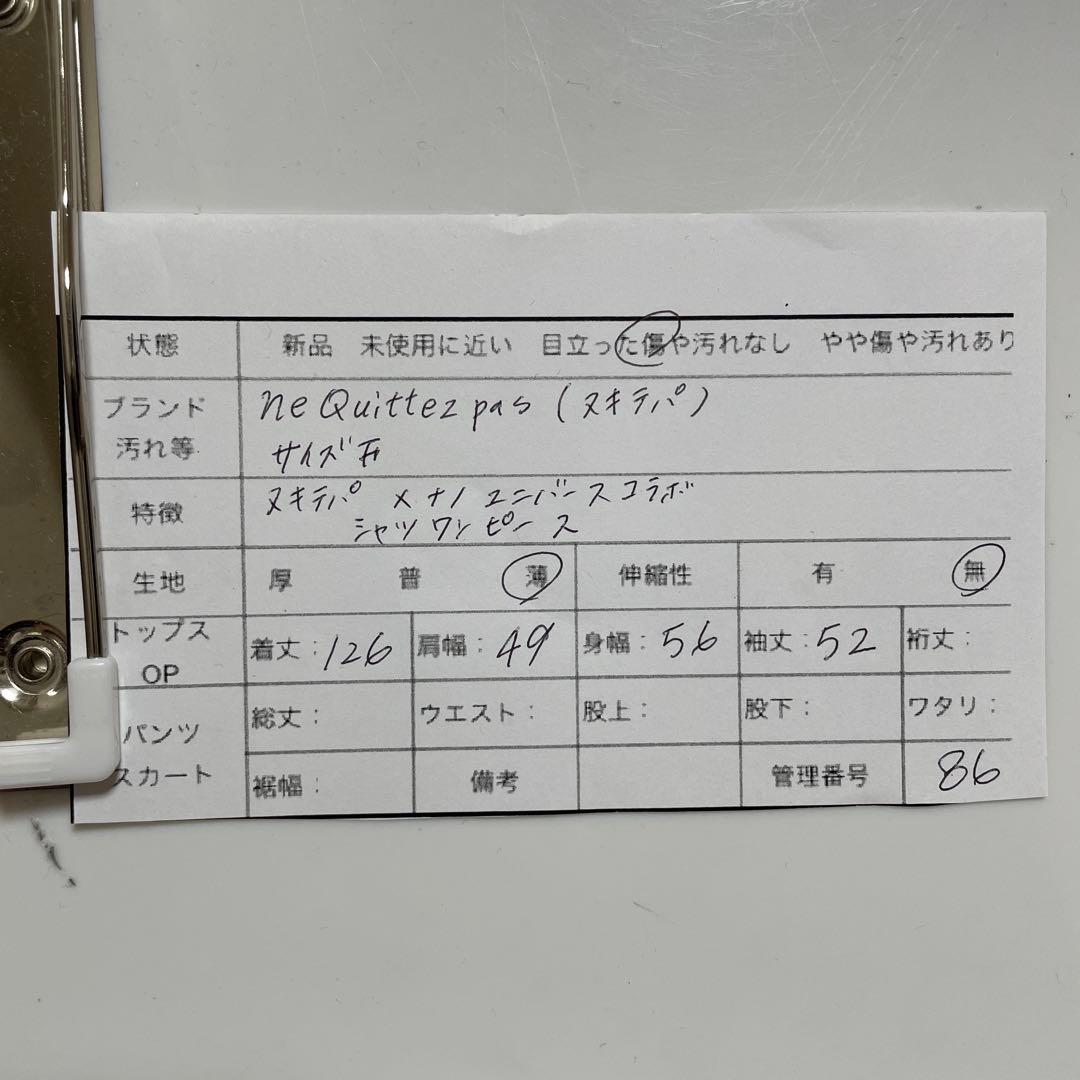 状態 新品 未使用に近い 目立った傷や汚れなし やや傷や汚れあり
ブランド 汚れ等 ne Quittez pas (ヌキテパ)
サイズ F
特徴 ヌキテパ × ナノユニバースコラボ
シャツワンピース
生地 厚 普 薄 伸縮性 有 無
トップス OP 着丈:126 肩幅:49 身幅:56 袖丈:52 裄丈:
パンツ スカート 総丈: ウエスト: 股上: 股下: ワタリ:
裾幅: 備考 管理番号 86